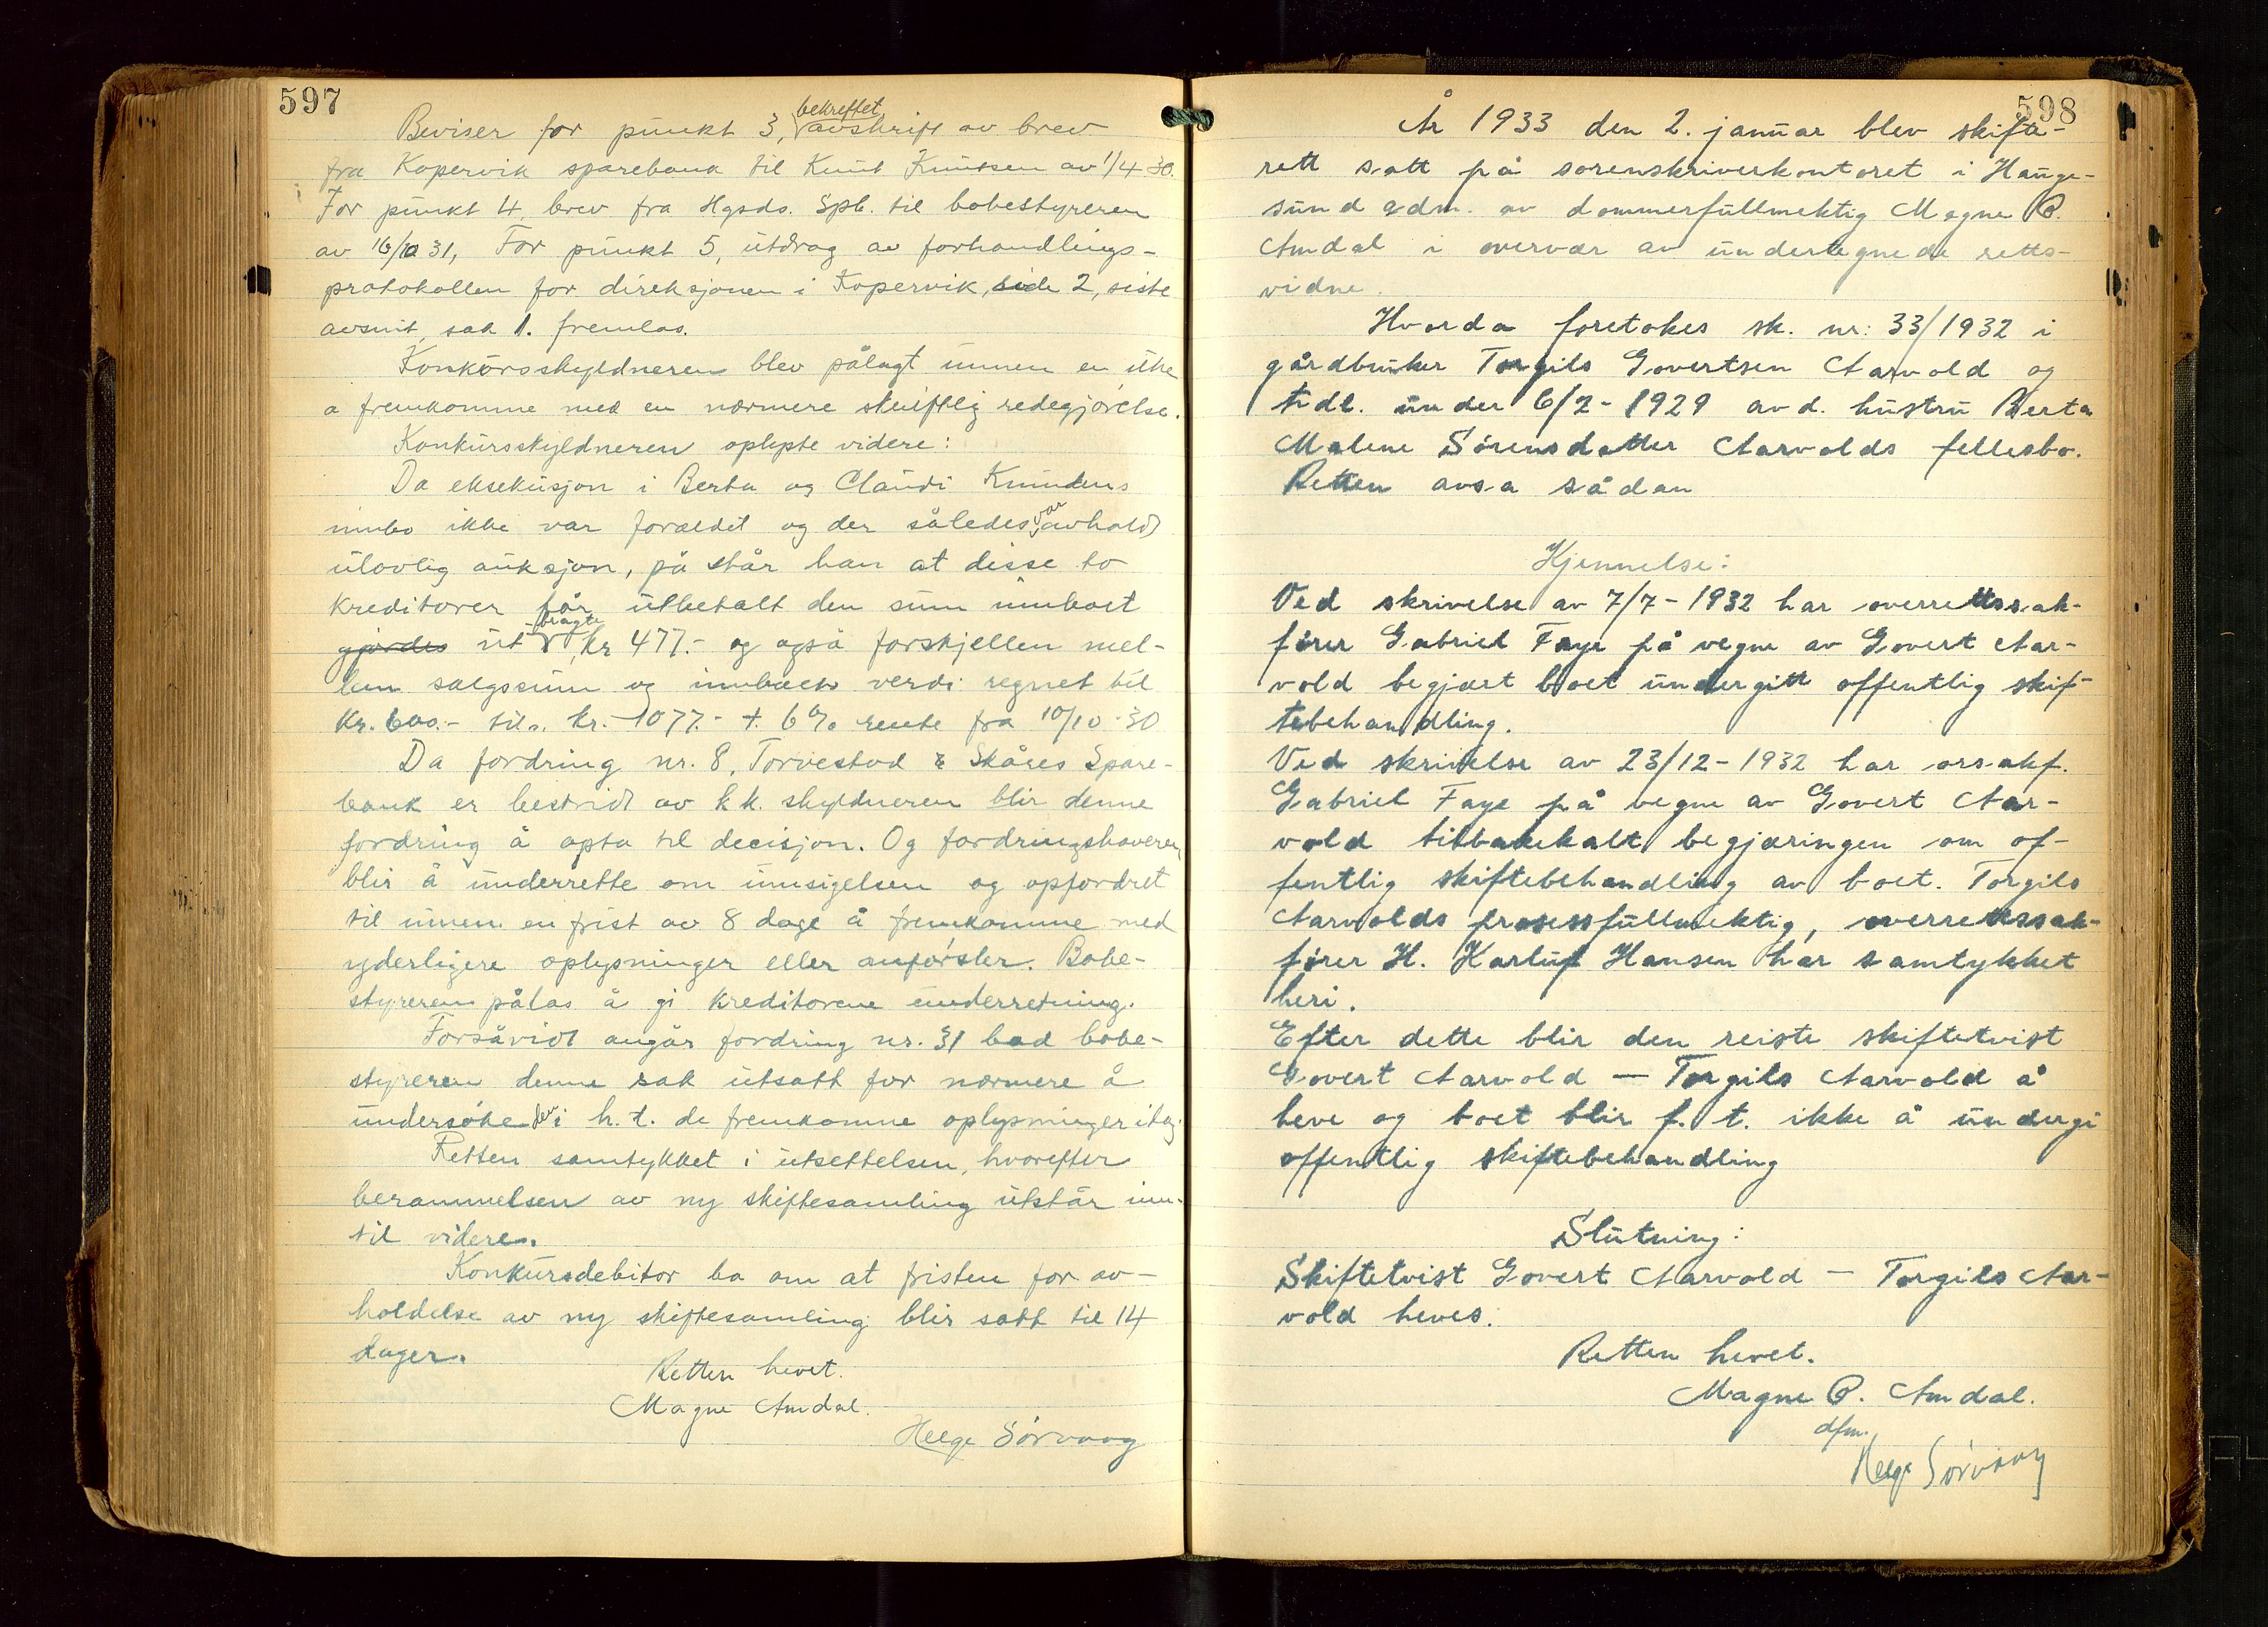 597
Beviser for punkt 3, bekreftet avskrift av brev
fra Kopervik sparebank til Knut Knutsen av 1/4 30.
For punkt 4, brev fra Hgsds. Spb. til bobestyreren
av 16/10 31, For punkt 5, utdrag av forhandlings-
protokollen for direksjonen i Kopervik, side 2, siste
avsnit, sak 1. fremlas.
Konkursskyldneren blev pålagt innen en uke
a fremkomme med en nærmere skriftlig redegjørelse.
Konkursskyldneren oplyste videre:
Da eksekusjon i Berta og Claudi Knudens
innbo ikke var foreldet og der således var avholdt
ulovlig auksjon, på står han at disse to
kreditorer får utbetalt den sum innboet
gjordes ut bragte, kr 477.- og også forskjellen mel-
lem salgssum og innboets verdi regnet til
Kr. 600.- tils. kr. 1077.- + 6% rente fra 10/10-30
Da fordring nr. 8, Torvestad & Skåres Spare-
bank er bestridt av k.k. skyldneren blir denne
fordring å opta til decisjon. Og fordringshaveren
blir å underrette om innsigelsen og opfordret
til innen en frist av 8 dage å fremkomme med
yderligere oplysninger eller anførsler. Bobe-
styreren pålas å gi kreditorene underretning.
Forsåvidt angår fordring nr. 31 bad bobe-
styreren denne sak utsatt for nærmere å
undersøke den i h.t. de fremkomne oplysninger idag.
Retten samtykket i utsettelsen, hvorefter
berammelsen av ny skiftesamling utstår inn-
til videre.
Konkursdebitor ba om at fristen for av-
holdelse av ny skiftesamling blir satt til 14
dager.
Retten hevet.
Magne Amdal.
Helge Sørvaag
598
År 1933 den 2. januar blev skifte-
rett satt på sorenskriverkontoret i Hauge-
sund adm. av dommerfullmektig Magne P.
Amdal i overvær av undertegnede retts-
vidne.
Hvorda foretokes sk. nr: 33/1932 i
gårdbruker Torgils Govertsen Aarvold og
hdl. under 6/2-1929 avd. hustru Berta
Malene Sørensdatter Aarvolds fellesbo.
Retten avsa sådan
Kjennelse:
Ved skrivelse av 7/7-1932 har overrettssak-
fører Gabriel Faye på vegne av Govert Aar-
vold begjært boet undergitt offentlig skif-
tebehandling.
Ved skrivelse av 23/12-1932 har orsakf.
Gabriel Faye på vegne av Govert Aar-
vold tilbakekalt begjæringen om of-
fentlig skiftebehandling av boet. Torgils
Aarvolds prosessfullmektig, overrettssak-
fører H. Karluf Hansen har samtykket
heri.
Efter dette blir den reiste skiftetvist
Govert Aarvold — Torgils Aarvold å
heve og boet blir f. t. ikke å undergi
offentlig skiftebehandling
Slutning:
Skiftetvist Govert Aarvold — Torgils Aar-
vold heves.
Retten hevet.
Magne P. Amdal.
dfm.
Helge Sørvaag